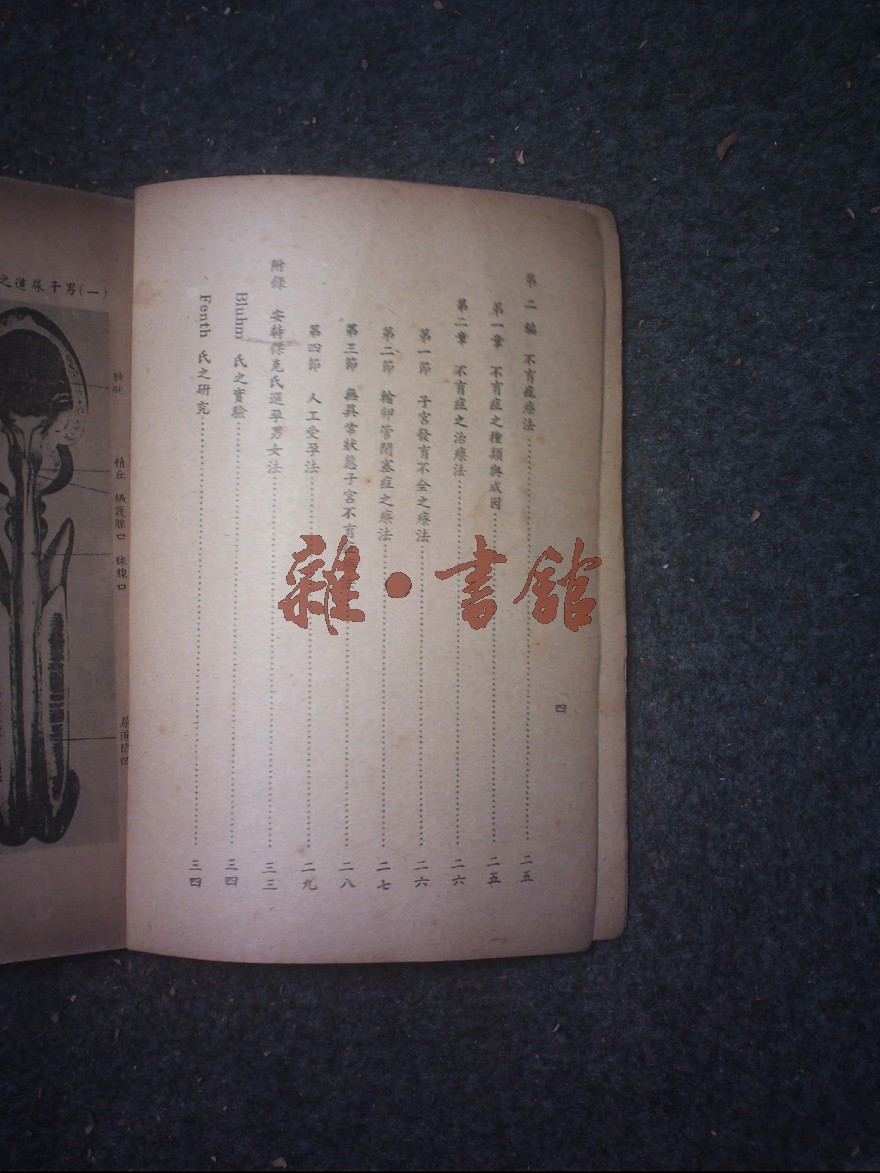 第二編 不育症療法……二五
第一章 不育症之種類與成因……二五
第二章 不育症之治療法……二六
第一節 子宮發育不全之療法……二六
第二節 輸卵管閉塞症之療法……二七
第三節 無異常狀態子宮不育……二八
第四節 人工受孕法……二九
附錄 安特傑克氏選孕男女法……三三
Bluhm 氏之實驗……三四
Fenth 氏之研究……三四
四
雜·書館
(一)男子尿道之
膀胱
精丘
攝護腺口
球腺口